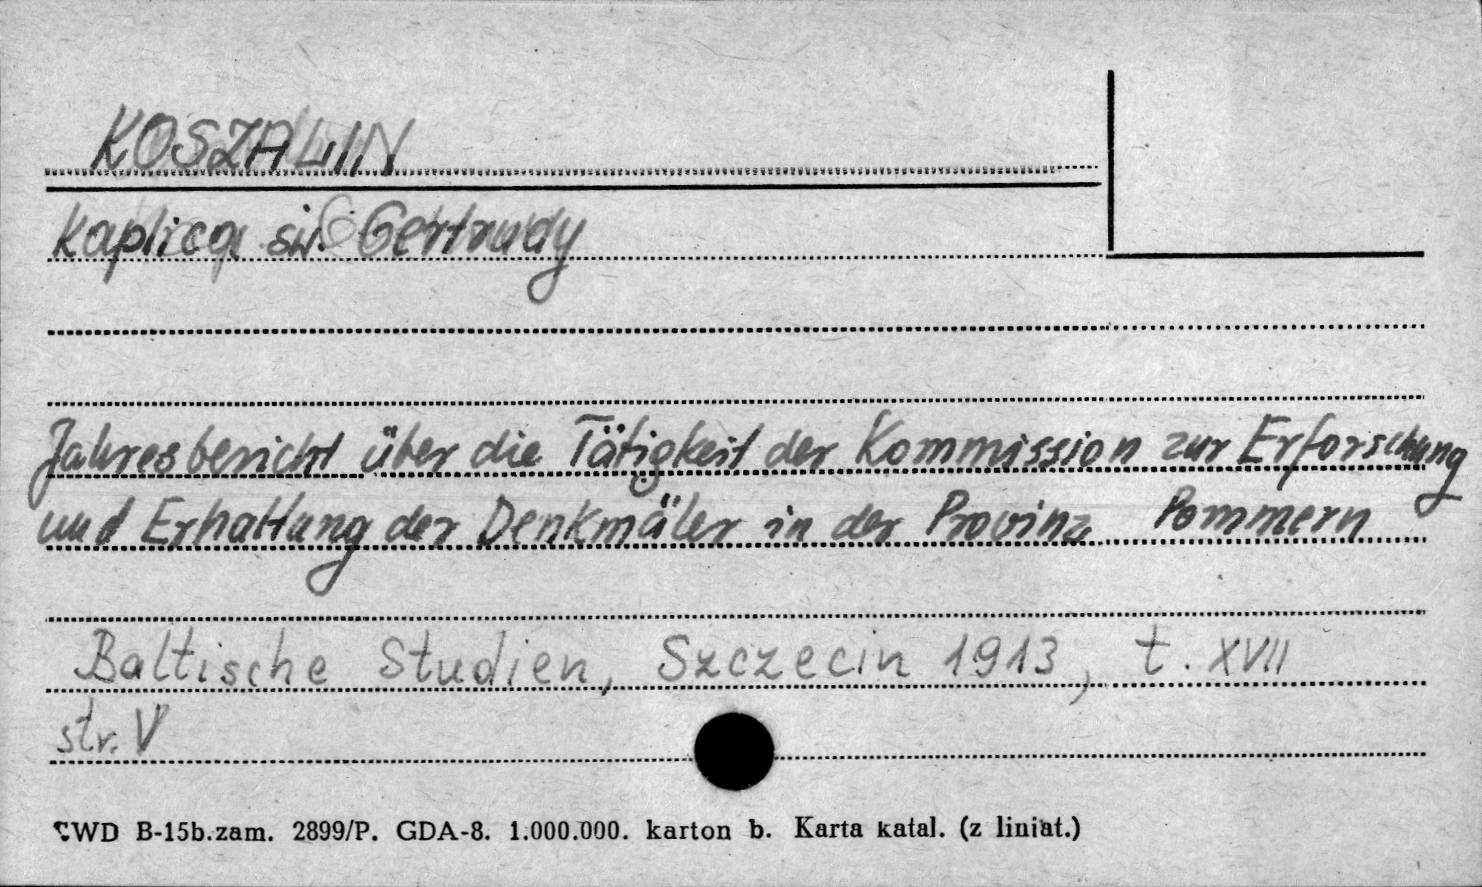 KOSZALIN
Kaplica św. Gertrudy
Jahresbericht über die Tätigkeit der Kommission zur Erforschung
und Erhaltung der Denkmäler in der Provinz Pommern
Baltische Studien, Szczecin 1913, t. XVII
str. V
CWD B-15b.zam. 2899/P. GDA-8. 1.000.000. karton b. Karta katal. (z liniat.)